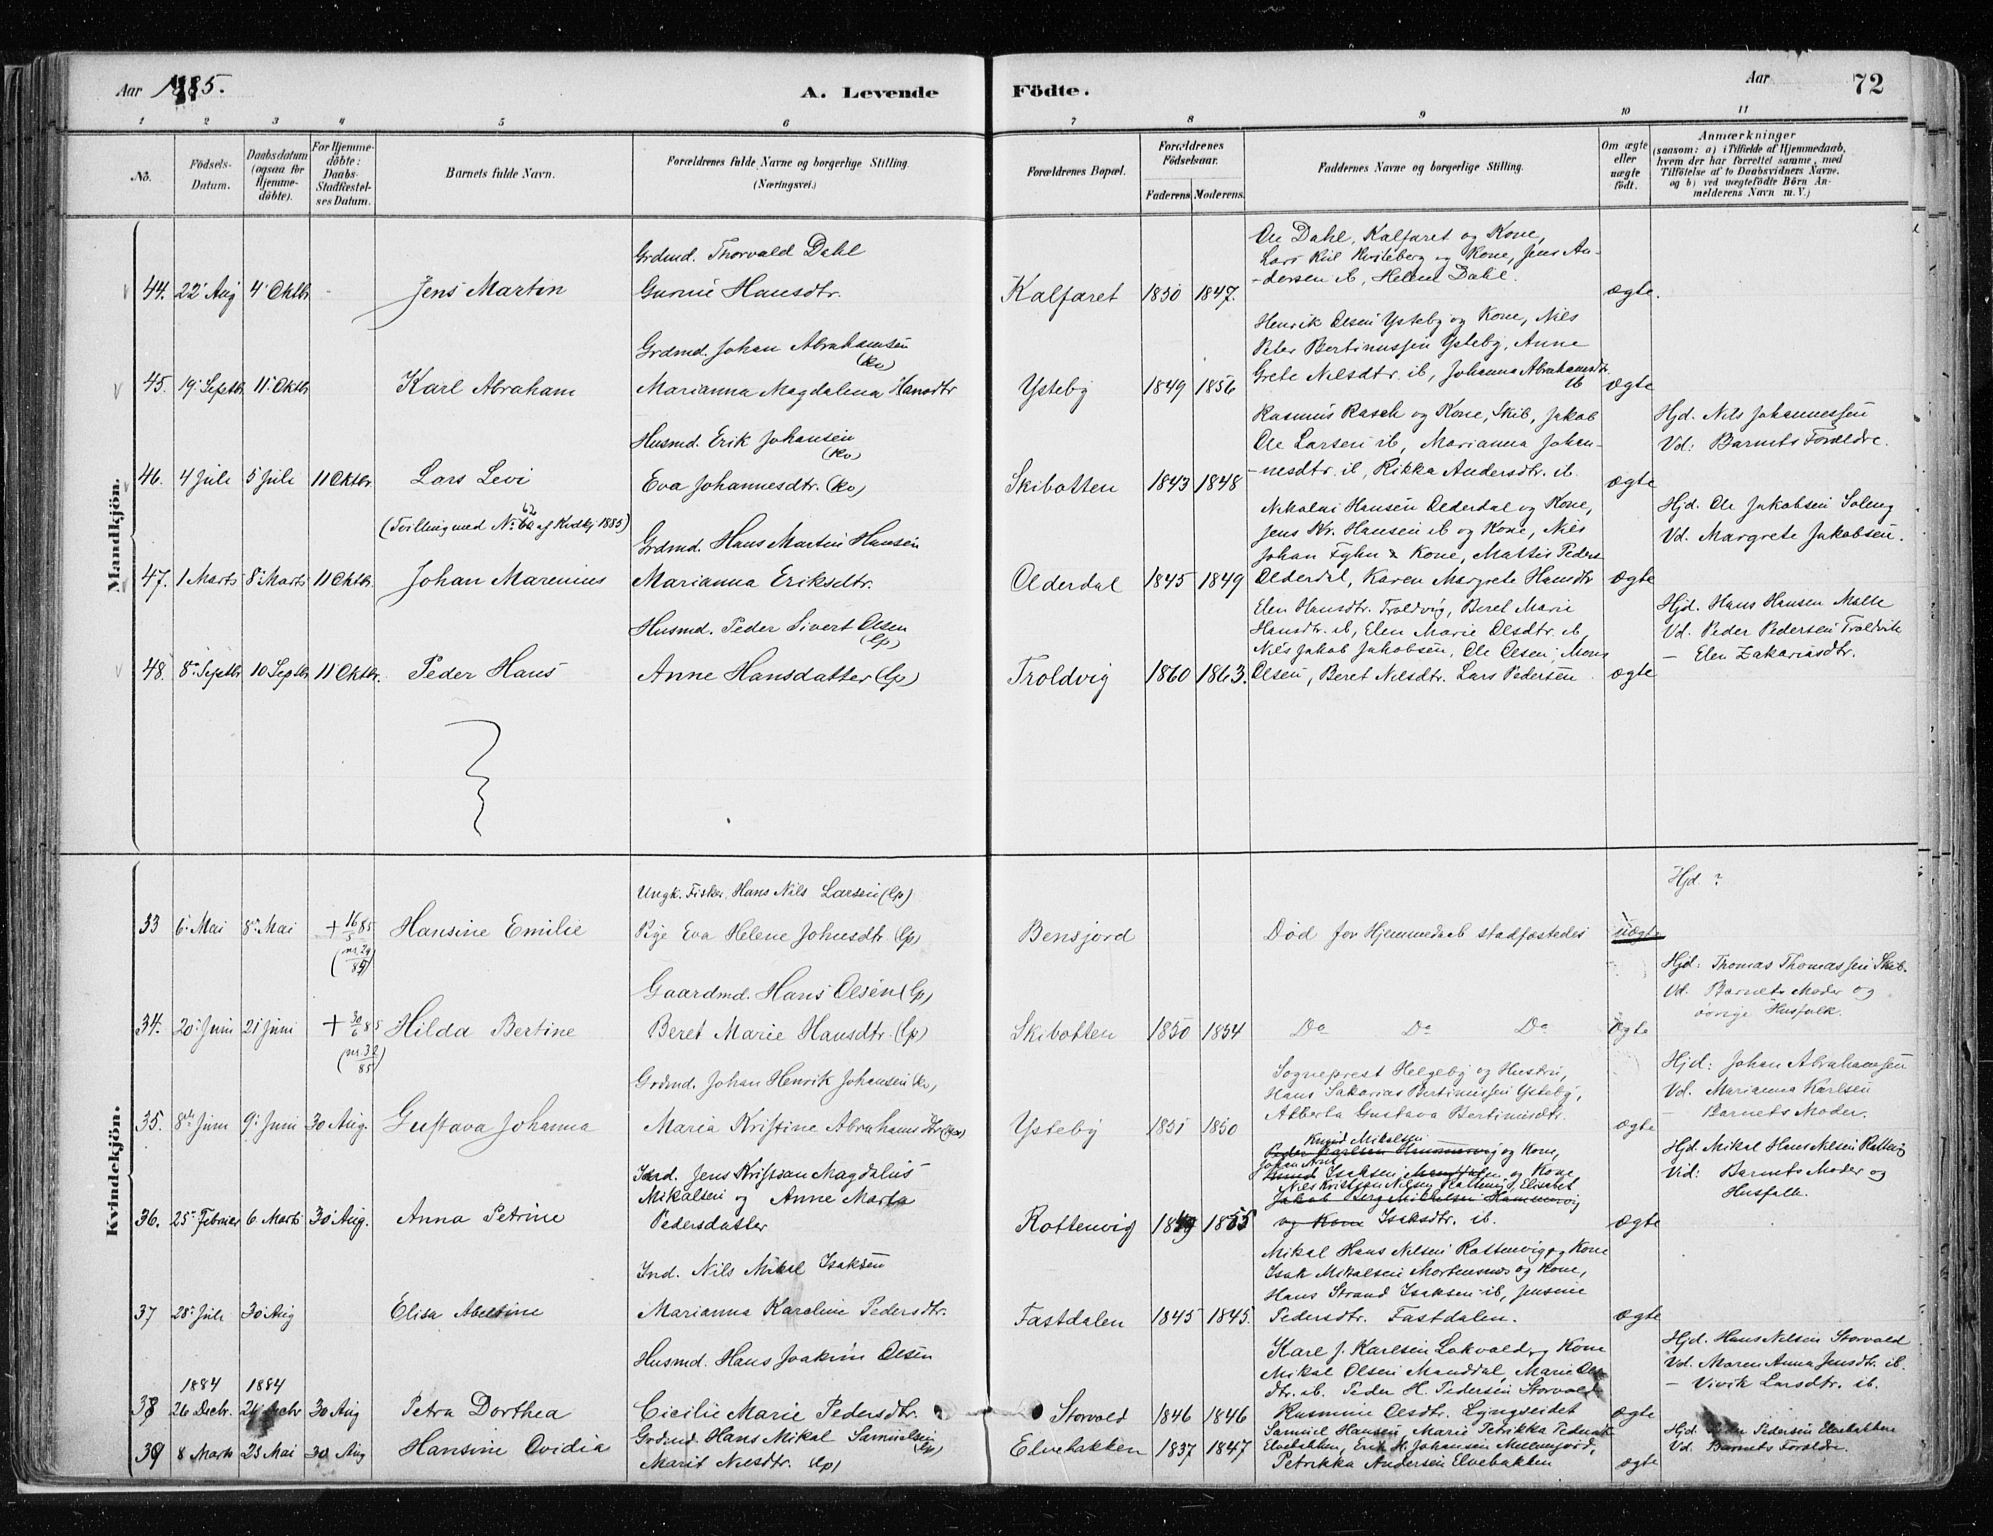 Aar 1885.
A. Levende
Födte.
Aar
72
1 2 3 4 5 6 7 8 9 10 11
No.
Födsels-Datum.
Daabsdatum (ogsaa for Hjemmedöbte).
For Hjemmedöbte: Daabs-Stadfæstelses Datum.
Barnets fulde Navn.
Forældrenes fulde Navne og borgerlige Stilling.
(Næringsvei.)
Forældrenes Bopæl.
Forældrenes Födselsaar.
Faderens. Moderens.
Faddernes Navne og borgerlige Stilling.
Om ægte eller uægte födt.
Anmærkninger
(saasom: a) i Tilfælde af Hjemmedaab, hvem der har forrettet samme, med Tilföielse af to Daabsvidners Navne, og b) ved uægtefödte Börn Anmelderens Navn m. V.)
Mandkjön.
44. 22 Aug 4 Oktbr - Jens Martin
Grdmd. Thorvald Dahl
Gurine Hansdtr.
Kalfaret 1850 1847.
Ole Dahl, Kalfaret og Kone,
Lars Kiil Kviteberg og Kone, Jens An-
-dersen ib, Helene Dahl.
ægte.
45. 19 Septbr 11 Oktbr Karl Abraham
Grdmd. Johan Abrahamsen
(Kv)
Marianna Magdalena Hansdtr
Ysteby 1849 1856
Henrik Olsen Ysteby og Kone, Nils
Peter Bertinussen Ysteby, Anne
Grete Nilsdtr ib, Johanna Abrahamsdtr
ib
ægte
46. 4 Juli 5 Juli 11 Oktbr Lars Levi
Husmd. Erik Johansen
(Kv)
Eva Johannesdtr. (Kv)
Skibotten 1843 1848
Rasmus Rasch og Kone, Skib, Jakob
Ole Larsen ib, Marianna Johan-
-nesdtr. ib, Rikka Andersdtr. ib.
ægte
Hjd. Nils Johannessen
Vd: Barnets Forældre.
(Tvilling med No. 62 af Kvdkj 1885)
47. 1 Marts 8 Marts 11 Oktbr. Johan Marenius
Grdmd. Hans Martin Hansen
Marianna Eriksdtr.
Olderdal 1845 1849
Nikolai Hansen Olderdal og Kone,
Jens Kr. Hansen ib og Kone, Nils
Johan Fyhn & Kone, Mattis Peders
Olderdal, Karen Margrete Hansdtr
ægte
Hjd. Ole Jakobsen Soleng
Vd. Margrete Jakobsen.
48. 8 Septbr 10 Septbr 11 Oktbr. Peder Hans
Husmd. Peder Sivert Olsen
(Lp)
Anne Hansdatter (Lp)
Troldvig 1860 1863.
Elen Hansdtr. Troldvig, Beret Marie
Hansdtr. ib, Elen Marie Olsdtr. ib
Nils Jakob Jakobsen, Ole Olsen, Mons
Olsen, Beret Nilsdtr. Lars Pedersen
ægte
Hjd. Hans Hansen Malle
Vd. Peder Pedersen Troldvik
- Elen Zakariasdtr.
Kvindekjön.
33 6 Mai 8 Mai + 16/5 85 (nr. 29/85) Hansine Emilie
Ungk. Fisker Hans Nils Larsen (Lp)
Pige Eva Helene Johnsdtr (Lp)
Bensjord
Död for Hjemmedaab stadfæstedes
uægte
Hjd ?
34. 20 Juni 21 Juni + 30/6 85 (nr. 32/85) Hilda Bertine
Gaardmd. Hans Olsen (Lp)
Beret Marie Hansdtr (Lp)
Skibotten 1850 1854
Do Do Do
ægte
Hjd: Thomas Thomassen Skib.
Vd. Barnets Moder og
øvrige Husfolk.
35. 8de Juni 9 Juni 30 Aug. Gustava Johanna
Grdmd. Johan Henrik Johansen (Kv)
Maria Kristine Abrahamsdtr (Kv)
Ysteby 1851 1850
Sogneprest Helgeby og Hustru,
Hans Sakarias Bertinussen Ysteby,
Alberta Gustava Bertinusdtr.
ægte
Hjd: Johan Abrahamsen
Vd. Marianna Karlsen
- Barnets Moder.
36. 25 Februar 6 Marts 30 Aug. Anna Petrine
Ind. Jens Kristian Magdalus
Mikalsen og Anne Marta
Pedersdatter
Rottenvig 1859 1855
Knud Mikalsen
Peder Karlsen Hammervig og Kone,
Isaksen og Kone
Nils Kristian Nilsen Rottenvig, Elisabet
Jakob Berg Mikkelsen Hammervig
og Kone Isaksdtr. ib.
ægte
Hjd. Mikal Hans Nilsen Rottenvig
Vid: Barnets Moder og
Husfolk.
37 28 Juli 30 Aug Elisa Albertine
Ind. Nils Mikal Isaksen
Marianna Karoline Pedersdtr.
Fastdalen 1845 1845.
Mikal Hans Nilsen Rottenvig og Kone
Isak Mikalsen Mortensnes og Kone,
Hans Strand Isaksen ib, Jensine
Pedersdtr. Fastdalen.
ægte
1884 1884
38 26 Decbr. 26 Decbr 30 Aug Petra Dorthea
Husmd. Hans Joakim Olsen
Cicilie Marie Pedersdtr.
Storvold 1846 1846
Karl J. Karlsen Lakvold og Kone
Mikal Olsen Manddal, Marie Ols
dtr. ib. Peder H. Pedersen Storvold
Rasmine Olsdtr. Lyngseidet
ægte
Hjd. Hans Nilsen Storvold
Vd. Maren Anna Jensdtr. ib.
- Vivik Larsdtr. ib.
39 8 Marts 25 Mai 30 Aug Hansine Ovidia
Grdmd. Hans Mikal Samuelsen
(Lp)
Marit Nilsdtr. (Lp)
Elvebakken 1837 1847
Samuel Hansen, Marie Petrikka Pedersdtr
Elvebakken, Erik H. Johansen Mellemjord,
Petrikka Andersen Elvebakken
ægte
Hjd. Peder Pedersen Elvebakken
Vd. Barnets Forældre.